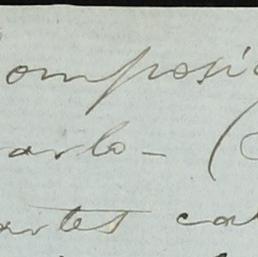 omposi
arlo - (
artes ca